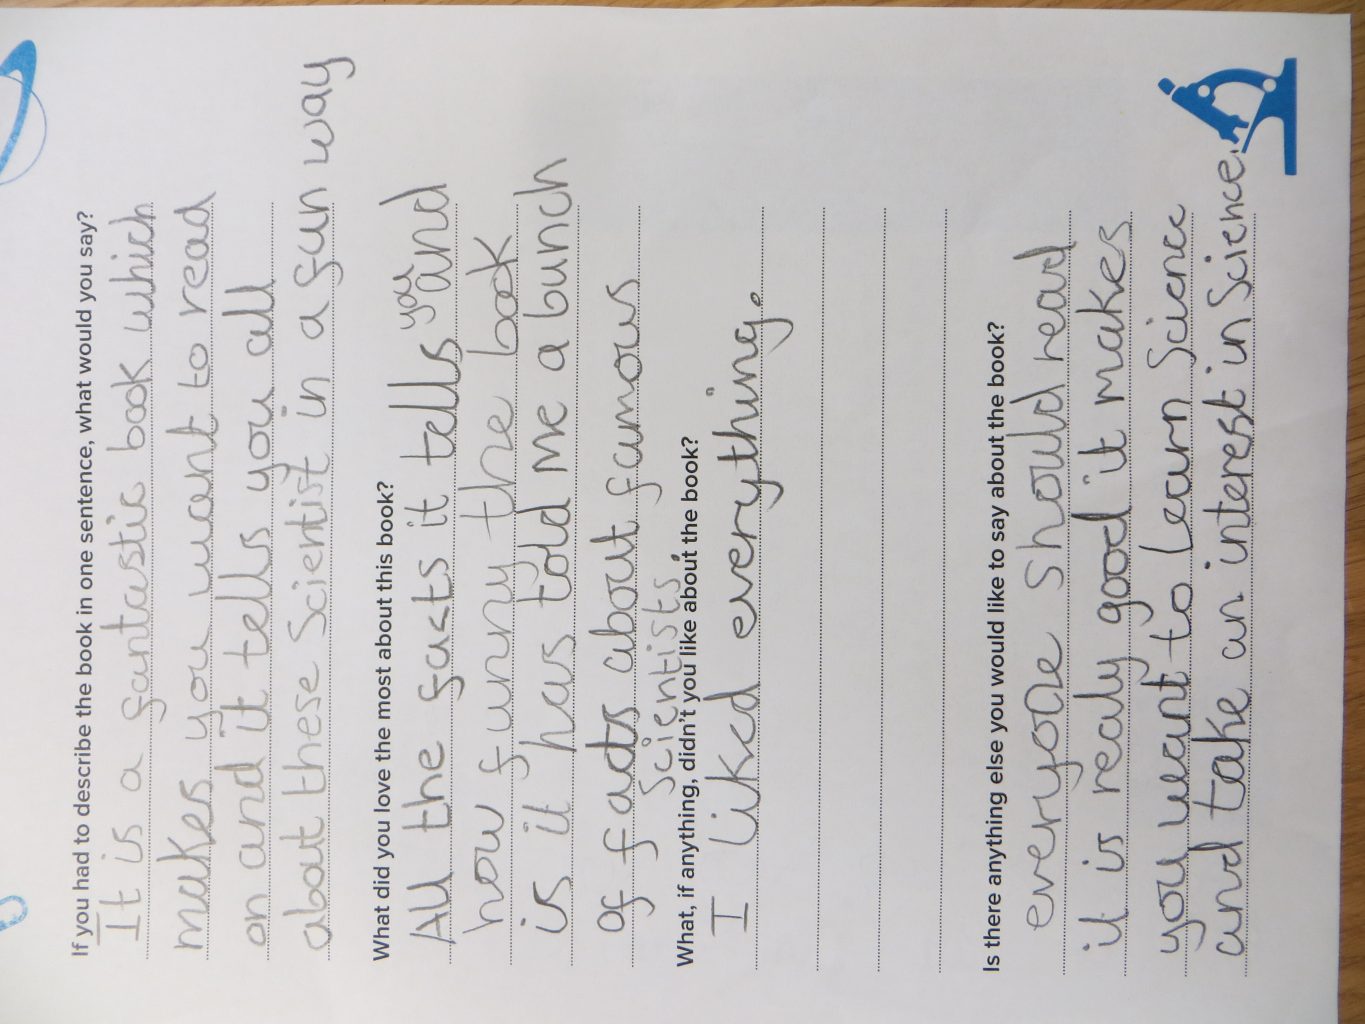 If you had to describe the book in one sentence, what would you say?
It is a fantastic book which
makes you want to read
on and it tells you all
about these Scientist in a fun way
What did you love the most about this book?
All the facts it tells you and
how funny the book
is it has told me a bunch
of facts about famous
scientists.
What, if anything, didn't you like about the book?
I liked everything.
Is there anything else you would like to say about the book?
everyone should read
it is realy good it makes
you want to learn Science
and take an interest in Science.